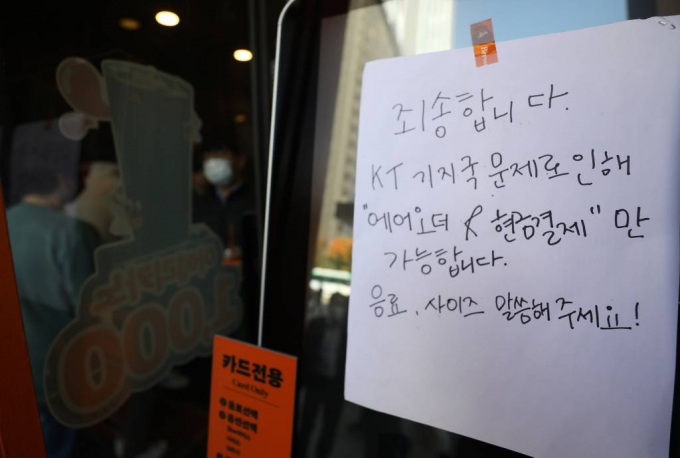 죄송합니다.
KT 기지국 문제로 인해
"에어오더 & 현금결제" 만
가능합니다.
음료, 사이즈 말씀해 주세요!
카드전용
Card Only
1,000